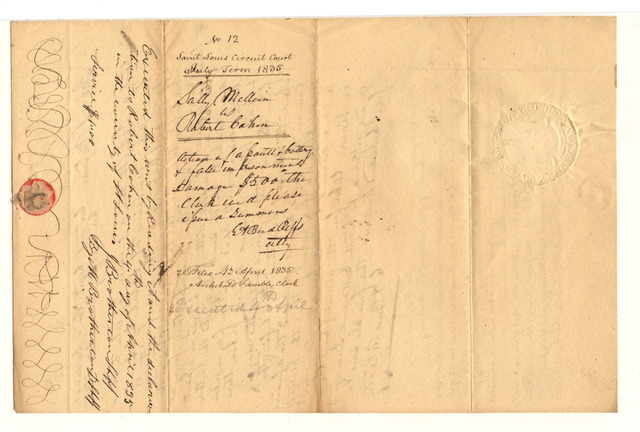 No 12
Saint Louis Circuit Court
July Term 1835
Sally
vs
Robert Cohen
Action of assault & battery
& false imprisonment
Damage $500 the
Clerk will please
issue a Summons
atty
Filed 4th April 1835
Archibald Gamble Clerk
Executed 9th April
Executed this writ by Reading it and the declara
tion to Robert Cohen on the 9th day of April 1835
in the county of St Louis J Brotherton Shff
By Brotherton D Shff
Service